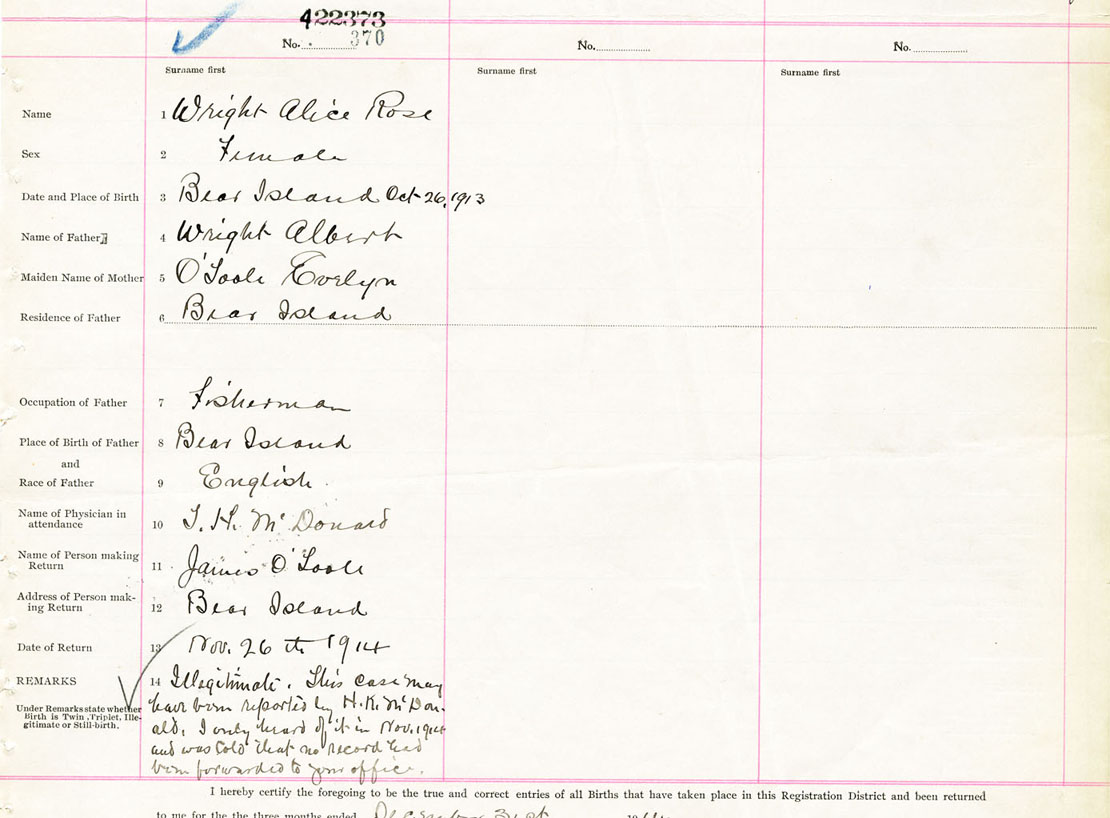 422373
No. 370 No. No.
Surname first Surname first Surname first
Name 1 Wright Alice Rose
Sex 2 Female
Date and Place of Birth 3 Bear Island Oct 26, 1913
Name of Father 4 Wright Albert
Maiden Name of Mother 5 O'Toole Evelyn
Residence of Father 6 Bear Island
Occupation of Father 7 Fisherman
Place of Birth of Father 8 Bear Island
and
Race of Father 9 English
Name of Physician in
attendance 10 T. H. McDonald
Name of Person making
Return 11 James O'Toole
Address of Person mak-
ing Return 12 Bear Island
Date of Return 13 Nov. 26th 1914
REMARKS 14 Illegitimate. This case may
Under Remarks state whether have been reported by H. K. McDon-
Birth is Twin, Triplet, Ille-
gitimate or Still-birth. ald, I only heard of it in Nov. 1914
and was told that no record had
been forwarded to your office.
I hereby certify the foregoing to be the true and correct entries of all Births that have taken place in this Registration District and been returned
to me for the the three months ended December 31st